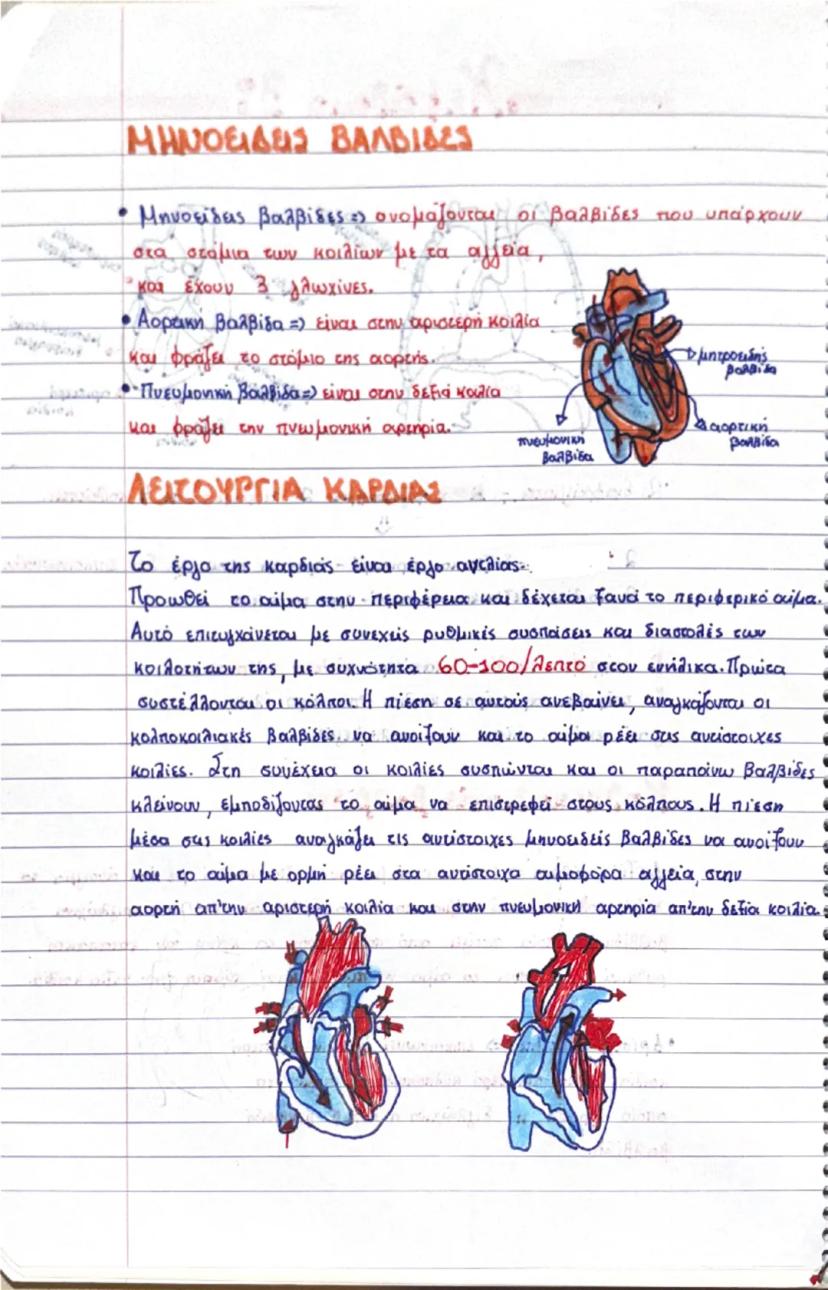 ΜΗΝΟΕΙΔΕΙΣ ΒΑΛΒΙΔΕΣ
• Μηνοείδεις βαλβίδες => ονομάζονται οι βαλβίδες που υπάρχουν
στα στόμια των κοιλίων με τα αγγεία,
και έχουν 3 γλωχίνες.
• Αορτική βαλβίδα => είναι στην αριστερή κοιλία
και φράζει το στόμιο της αορτής.
• Πνευμονική βαλβίδα => είναι στην δεξιά κοιλία
και φράζει την πνευμονική αρτηρία.
μητροειδής
βαλβίδα
αορτική
βαλβίδα
πνευμονική
βαλβίδα
ΛΕΙΤΟΥΡΓΙΑ ΚΑΡΔΙΑΣ
Το έργο της καρδιάς είναι έργο αντλίας.
Προωθεί το αίμα στην περιφέρεια και δέχεται ξανά το περιφερικό αίμα.
Αυτό επιτυγχάνεται με συνεχείς ρυθμικές συσπάσεις και διαστολές των
κοιλοτήτων της, με συχνότητα 60-100/λεπτό στον ενήλικα. Πρώτα
συστέλλονται οι κόλποι. Η πίεση σε αυτούς ανεβαίνει, αναγκάζονται οι
κολποκοιλιακές βαλβίδες να ανοίξουν και το αίμα ρέει στις αντίστοιχες
κοιλίες. Στη συνέχεια οι κοιλίες συσπώνται και οι παραπάνω βαλβίδες
κλείνουν, εμποδίζοντας το αίμα να επιστρέφει στους κόλπους. Η πίεση
μέσα στις κοιλίες αναγκάζει τις αντίστοιχες μηνοειδείς βαλβίδες να ανοίξουν
και το αίμα με ορμή ρέει στα αντίστοιχα αιμοφόρα αγγεία, στην
αορτή απ'την αριστερή κοιλία και στην πνευμονική αρτηρία απ'την δεξία κοιλία.